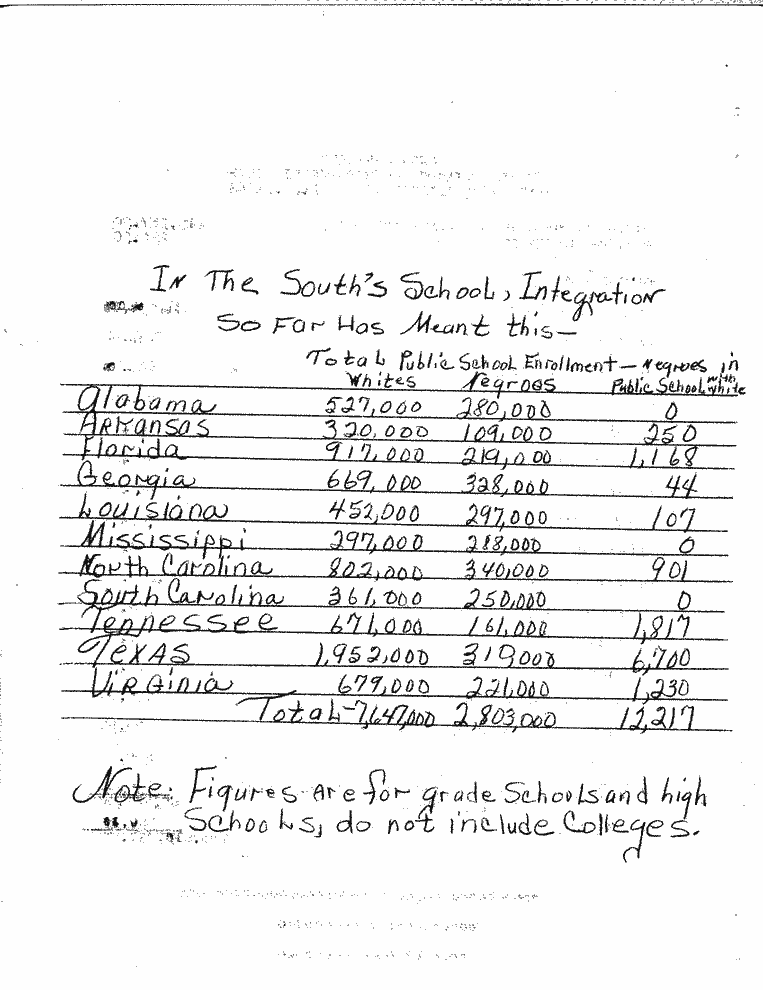 In The South's School, Integration
So Far Has Meant this—
Total Public School Enrollment — Negroes in
Whites Negroes Public School with white
Alabama 527,000 280,000 0
Arkansas 320,000 109,000 250
Florida 917,000 219,000 1,168
Georgia 669,000 328,000 44
Louisiana 452,000 297,000 107
Mississippi 297,000 288,000 0
North Carolina 802,000 340,000 901
South Carolina 361,000 250,000 0
Tennessee 671,000 161,000 1,817
Texas 1,952,000 319,000 6,700
Virginia 679,000 221,000 1,230
Total-7,647,000 2,803,000 12,217
Note: Figures are for grade Schools and high
Schools, do not include Colleges.